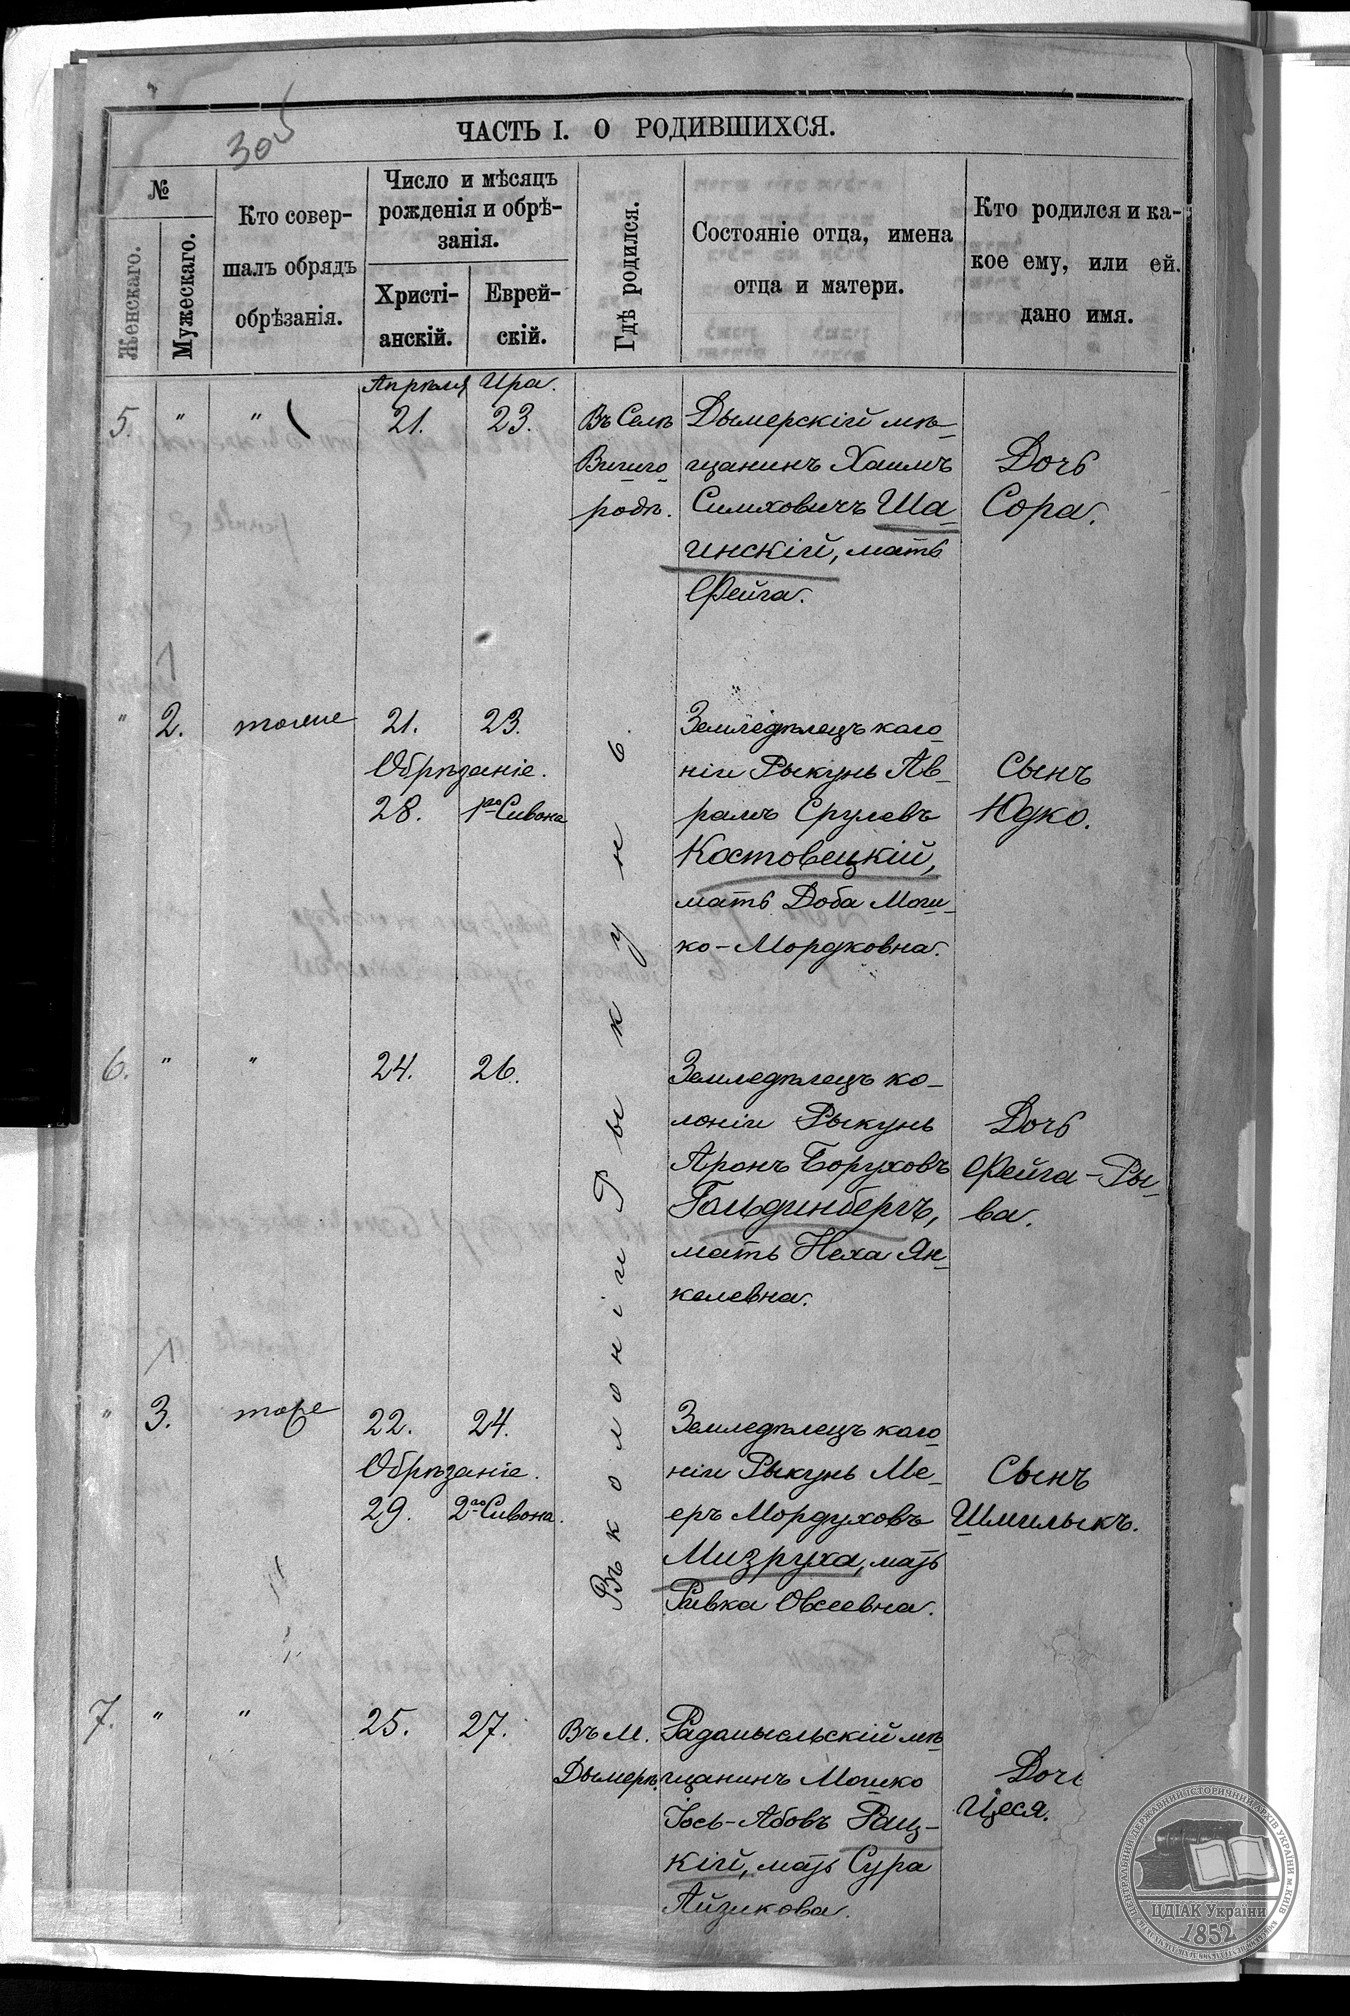 305
ЧАСТЬ I. О РОДИВШИХСЯ.
№
Женскаго.
Мужескаго.
Кто совер-
шалъ обрядъ
обрѣзанія.
Число и мѣсяцъ
рожденія и обрѣ-
занія.
Христі-
анскій.
Еврей-
скій.
Гдѣ родился.
Состояніе отца, имена
отца и матери.
Кто родился и ка-
кое ему, или ей.
дано имя.
Апрѣля Ира.
5. " " 21. 23.
Въ Селѣ
Вышго
родѣ.
Дымерскій мѣ-
щанинъ Хаимъ
Симховичъ Ша-
инскій, мать
Фейга.
Дочь
Сора.
1
" 2. тоже 21. 23.
Обрѣзаніе.
28. 1го Сивона
Въ колоніи Рыкунь.
Земледѣлецъ коло
ніи Рыкунь Ав-
рамъ Срулевъ
Костовецкій,
мать Доба Мош-
ко-Мордковна.
Сынъ
Юдко.
6. " " 24. 26.
Земледѣлецъ ко-
лоніи Рыкунь
Аронъ Боруховъ
Гольдинбергъ,
мать Неха Ян-
келевна.
Дочь
Фейга-Ры-
ва.
1
" 3. тоже 22. 24.
Обрѣзаніе.
29. 2го Сивона.
Земледѣлецъ коло
ніи Рыкунь Ме-
еръ Мордуховъ
Мизруха, мать
Ривка Овсеевна.
Сынъ
Шмилыкъ.
7. " " 25. 27.
Въ М.
Дымерѣ.
Радомысльскій мѣ
щанинъ Мошко
Іось-Абовъ Рац-
кій, мать Сура
Айзикова.
Дочь
Цеся.
ЦЕНТРАЛЬНИЙ ДЕРЖАВНИЙ ІСТОРИЧНИЙ АРХІВ УКРАЇНИ м. КИЇВ
ЦДІАК України
1852